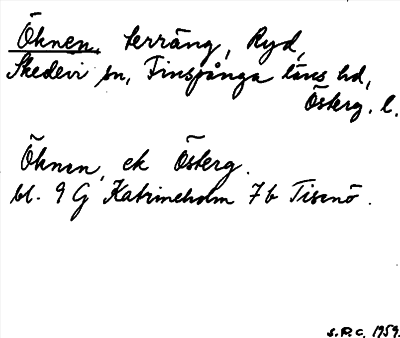 Öknen, terräng, Ryd,
Skedevi sn, Finspånga läns hd,
Österg. l.
Öknen, ek Österg.
bl. 9 G Katrineholm 7 b Tisenö.
S.P.C. 1959.